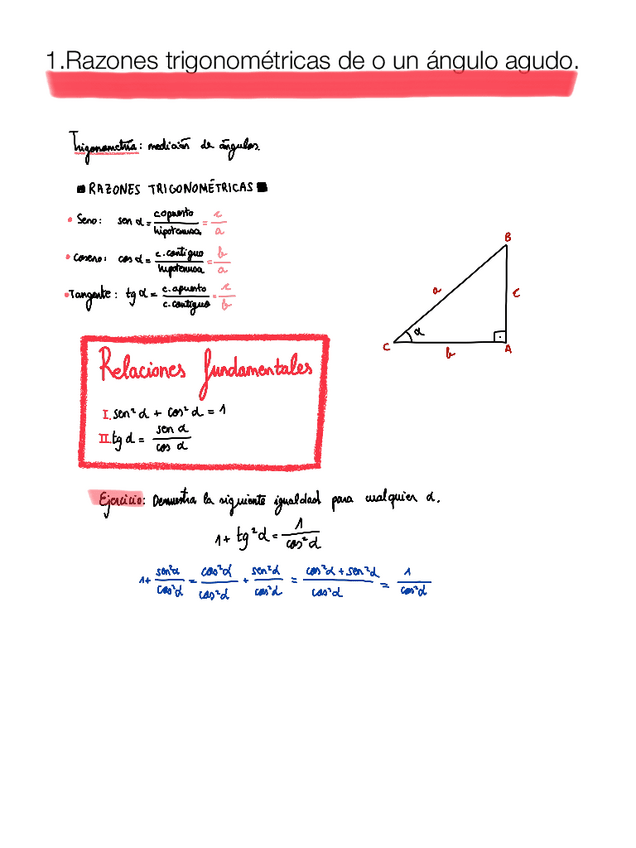 1.Razones trigonométricas de o un ángulo agudo.
Trigonometría: medición de ángulos.
RAZONES TRIGONOMÉTRICAS
• Seno: sen α = c.opuesto/hipotenusa = c/a
• Coseno: cos α = c.contiguo/hipotenusa = b/a
• Tangente: tg α = c.opuesto/c.contiguo = c/b
B
a
c
α
C
b
A
Relaciones fundamentales
I. sen² α + cos² α = 1
II. tg α = sen α/cos α
Ejercicio: Demuestra la siguiente igualdad para cualquier α.
1 + tg² α = 1/cos² α
1 + sen² α/cos² α = cos² α/cos² α + sen² α/cos² α = cos² α + sen² α/cos² α = 1/cos² α